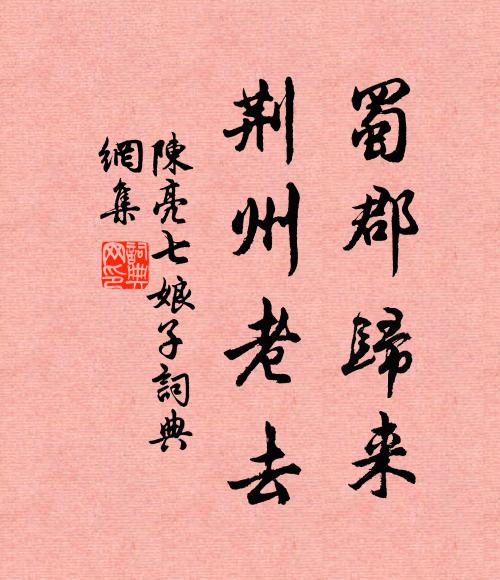 蜀郡歸来
荆州老去
陳亮七娘子詞典
網集
詞典網印